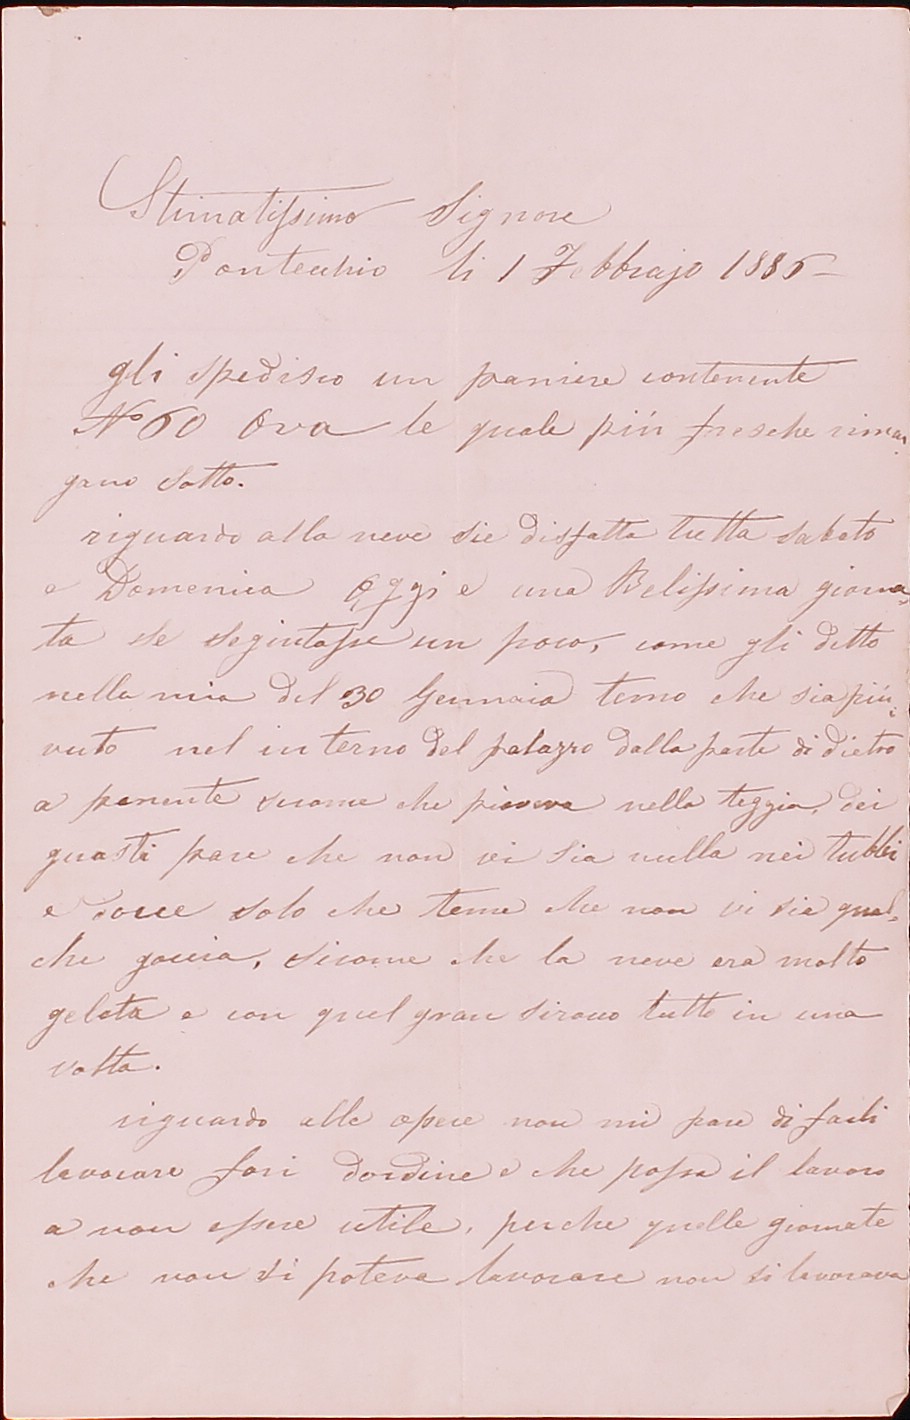 Stimatissimo Signore
Pontecchio li 1 Febbrajo 1886
gli spedisco un paniere contenente
N° 60 Ova le quale piú fresche riman
gano sotto.
riguardo alla neve sie disfatta tutta sabato
e Domenica Oggi e una Belissima giorna,
ta se segiutasse un poco, come gli detto
nella mia del 30 Gennaio temo che sia piú,
vuto nel interno del palazzo dalla parte di dietro
a ponente sicome che pioveva nella teggia, dei
guasti pare che non vi sia nulla nei tubbi
e docce solo che teme che non vi sie qual,
che goccia, sicome che la neve era molto
gelata e con quel gran siroco tutto in una
volta.
riguardo alle opere non mi pare di farli
lavorare fori dordine e che possa il lavoro
a non essere utile, perche quelle giornate
che non si poteva lavorare non si lavorava